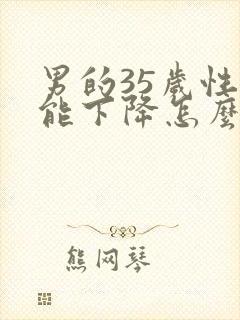 男的35岁性
能下降怎麼
熊网琴